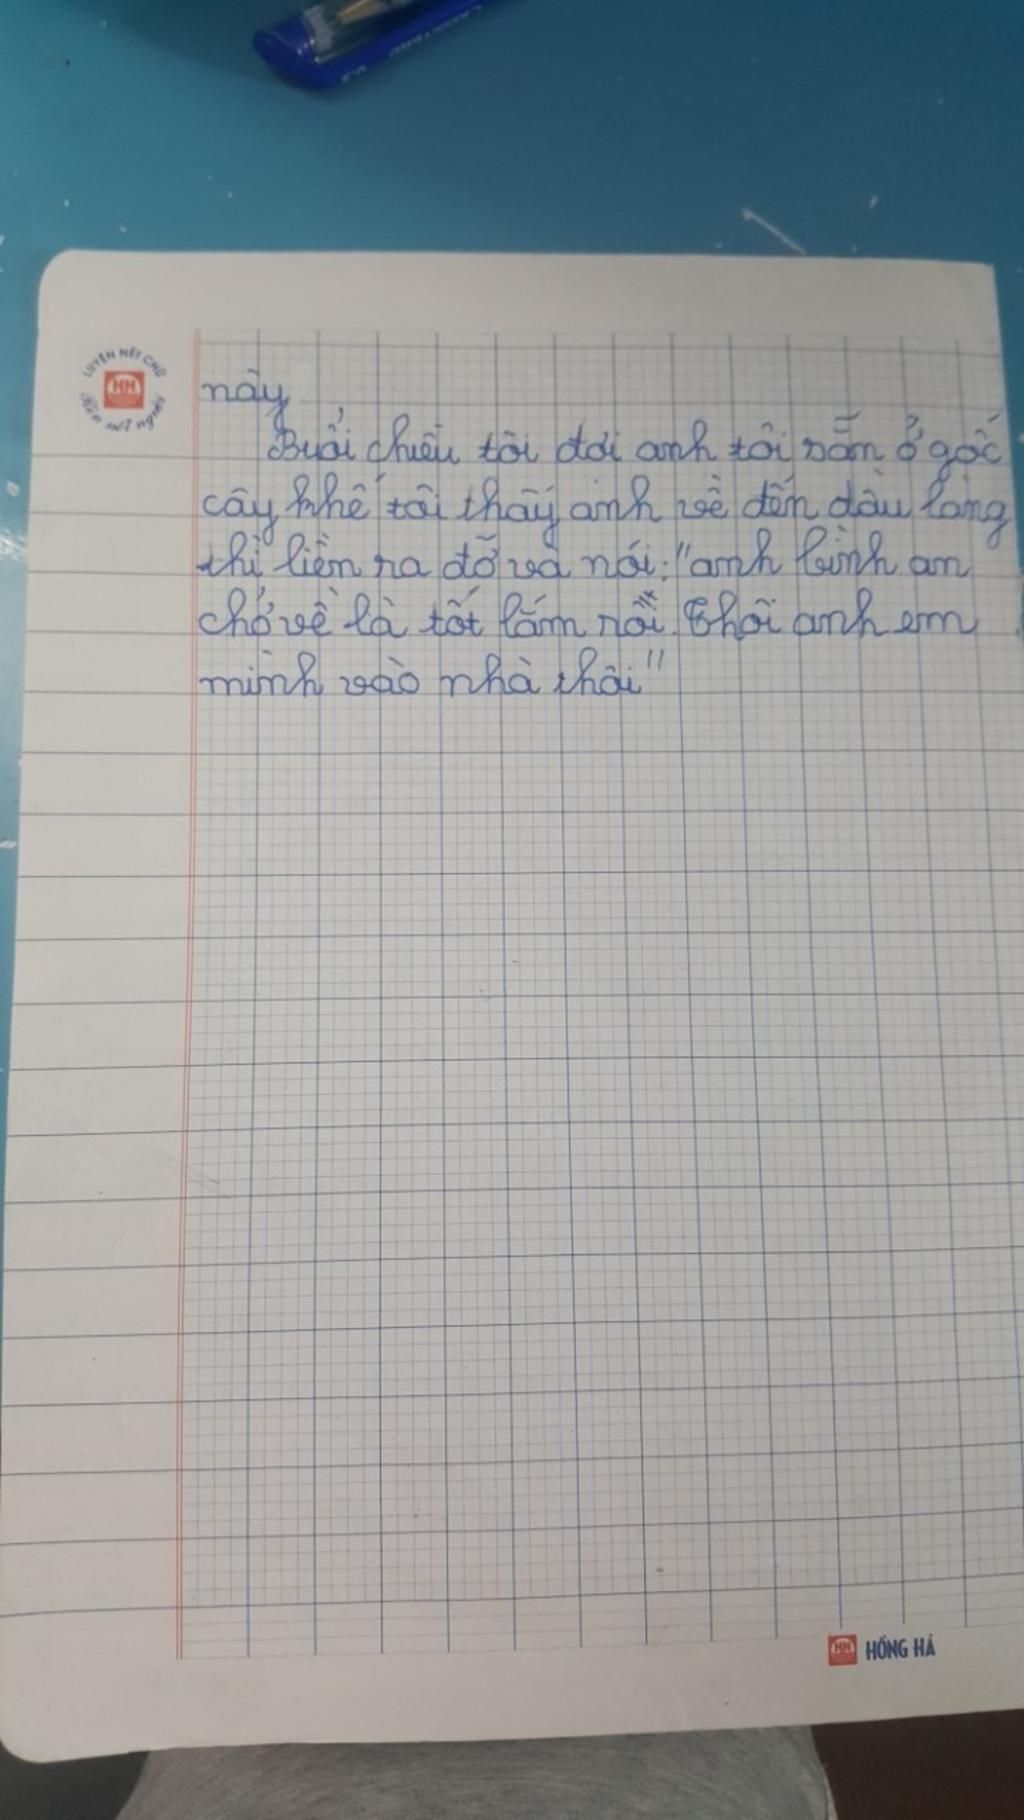 LUYỆN NÉT CHỮ
HH
Rèn nết người
này
Buổi chiều tôi đợi anh tôi sẵn ở gốc
cây khế tôi thấy anh về đến đầu làng
thì liền ra đỡ và nói: "anh bình an
chở về là tốt lắm rồi. Thôi anh em
mình vào nhà thôi"
HH HỒNG HÀ